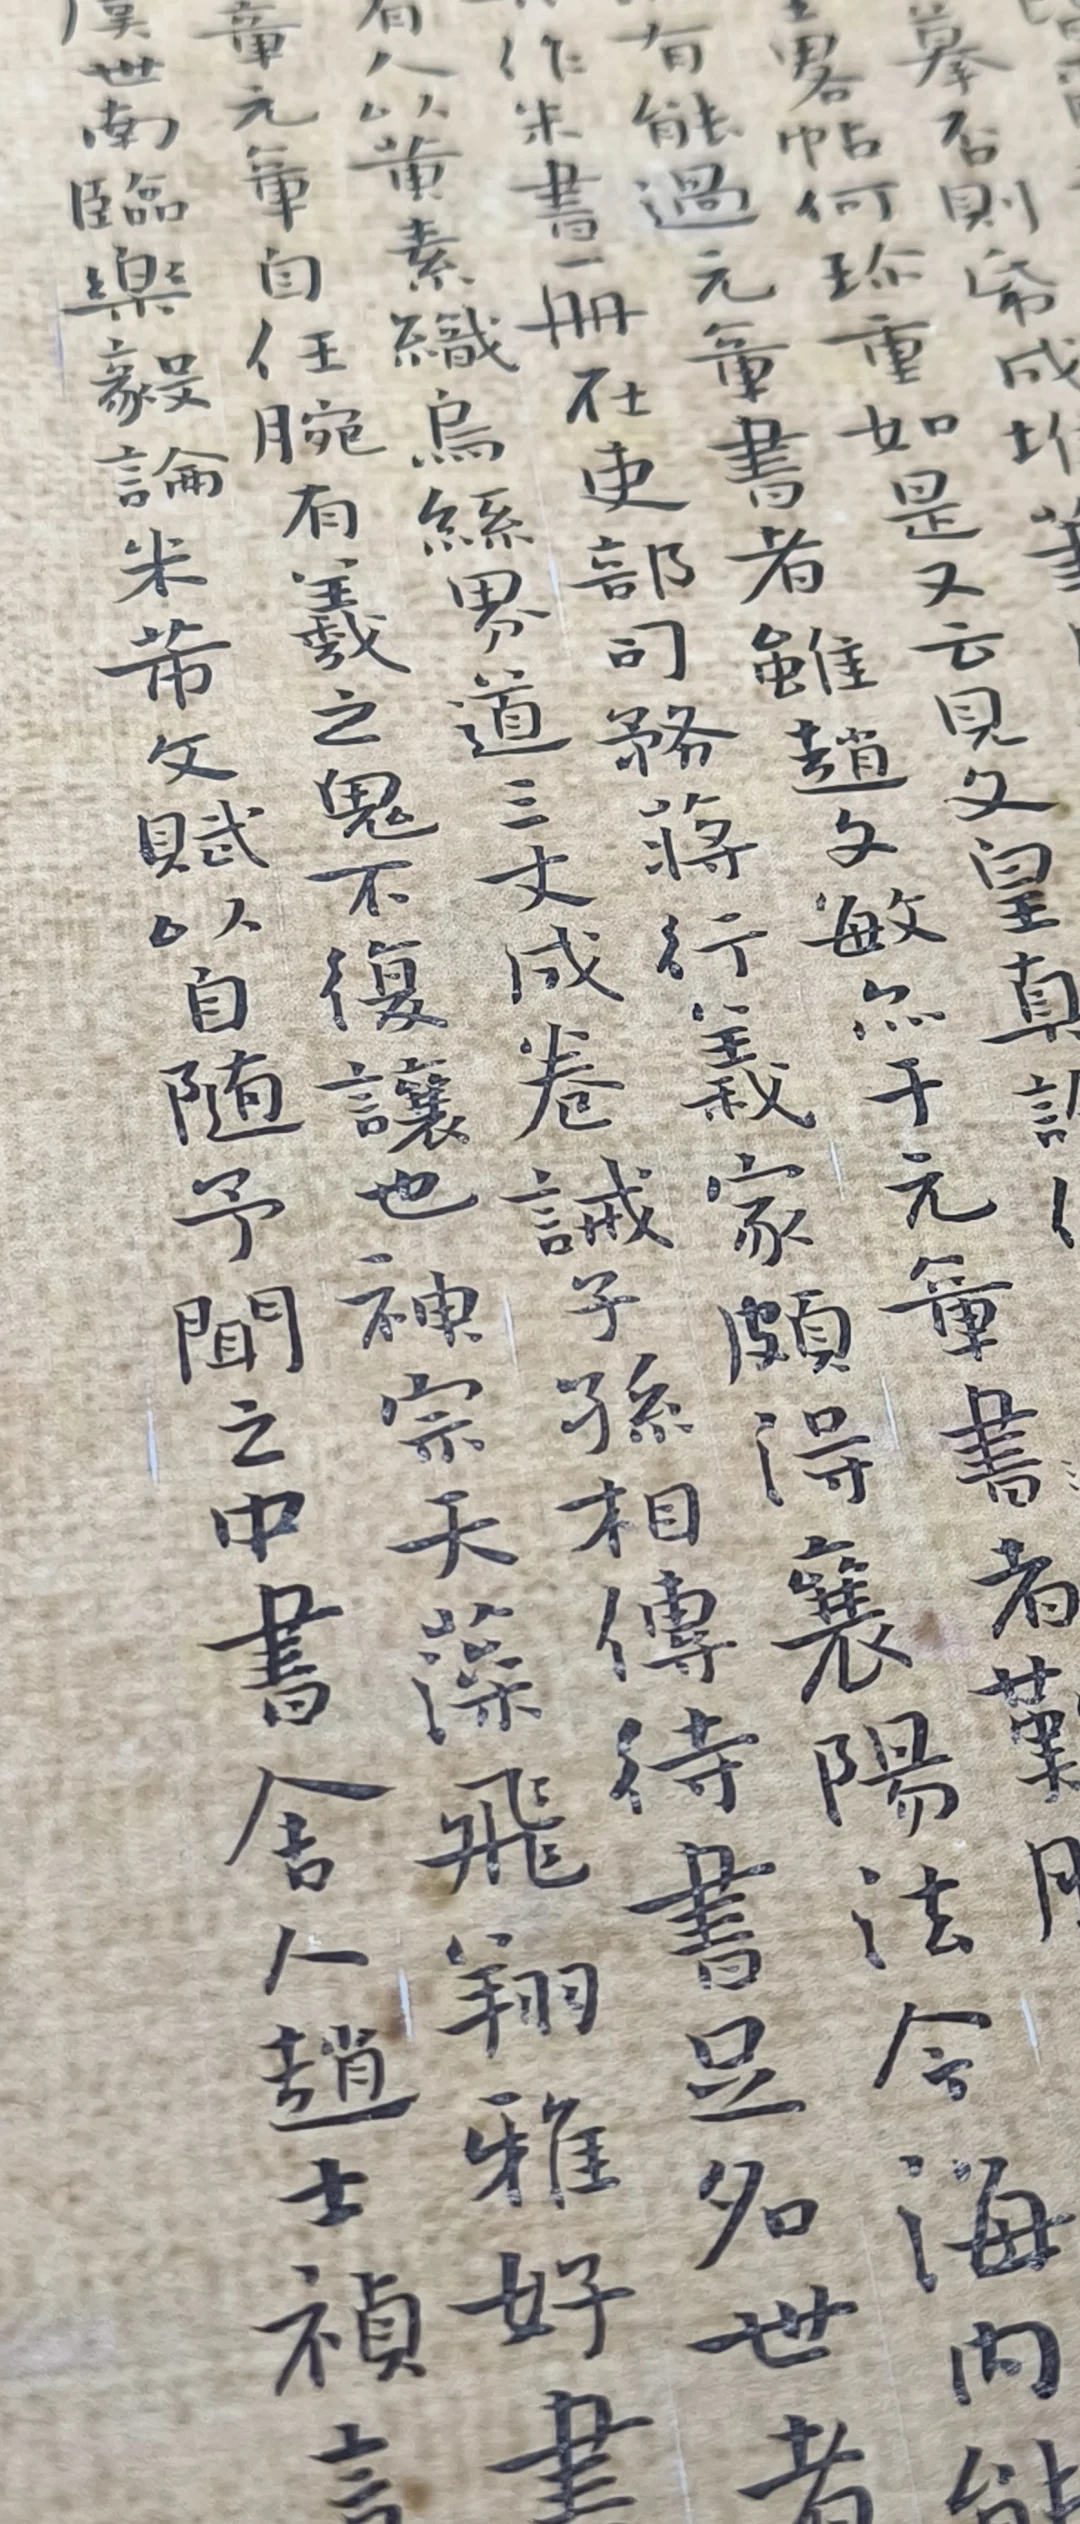 摹否則常成堆
畧帖何珎重如是又云見文皇真
有能過元章書者雖趙文敏無干元章書者
作米書一冊在吏部司務蔣行義家頗得襄陽法今海内能
有人以黄素織烏絲界道三丈成卷誡子孫相傳待書足名世者
章元章自任腕有羲之鬼不復讓也神宗天藻飛翔雅好書
世南臨樂毅論米芾文賦以自随予聞之中書舍人趙士禎言